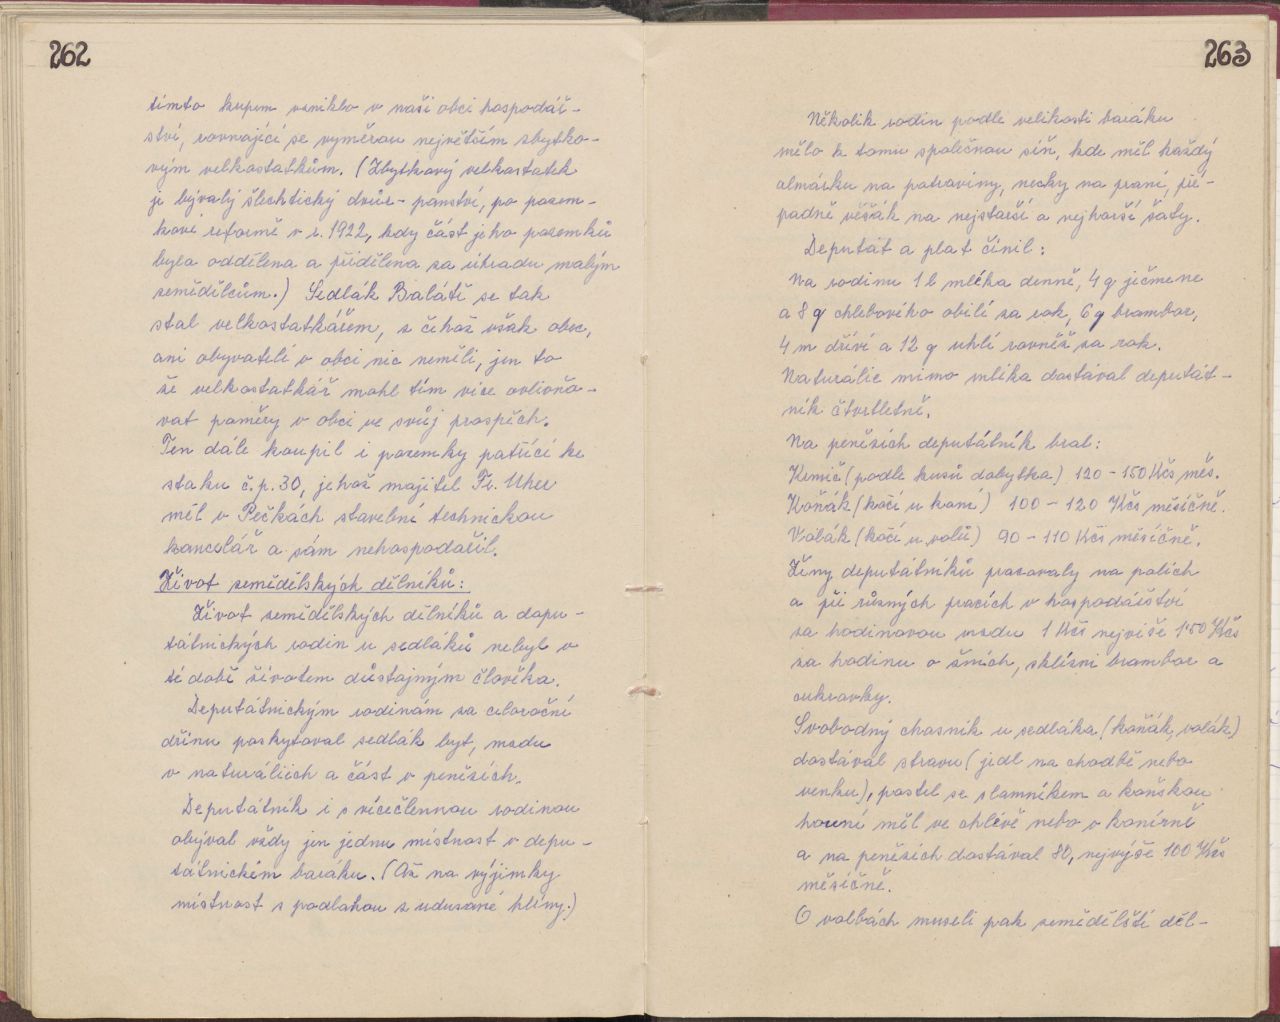 262
tímto kupem vzniklo v naší obci hospodář-
ství, rovnající se výměrou největším zbytko-
vým velkostatkům. (Zbytkový velkostatek
je bývalý šlechtický dvůr - panství, po pozem-
kové reformě v r. 1922, kdy část jeho pozemků
byla oddělena a přidělena za úhradu malým
zemědělcům.) Sedlák Balátě se tak
stal velkostatkářem, z čehož však obec,
ani obyvatelé v obci nic neměli, jen to
že velkostatkář mohl tím více ovlivňo-
vat poměry v obci ve svůj prospěch.
Ten dále koupil i pozemky patřící ke
staku č.p. 30, jehož majitel Fr. Uher
měl v Pečkách stavební technickou
kancelář a sám nehospodařil.
Život zemědělských dělníků:
Život zemědělských dělníků a depu-
tátnických rodin u sedláků nebyl v
té době životem důstojným člověka.
Deputátnickým rodinám za celoroční
dřinu poskytoval sedlák byt, mzdu
v naturáliích a část v penězích.
Deputátník i s vícečlennou rodinou
obýval vždy jen jednu místnost v depu-
tátnickém baráku. (Až na výjimky
místnost s podlahou z udusané hlíny.)
263
Několik rodin podle velikosti baráku
mělo k tomu společnou síň, kde měl každý
almárku na potraviny, necky na praní, pří-
padně věšák na nejstarší a nejhorší šaty.
Deputát a plat činil:
Na rodinu 1 l mléka denně, 4 q ječmene
a 8 q chlebového obilí za rok, 6 q brambor,
4 m dříví a 12 q uhlí rovněž za rok.
Naturálie mimo mléka dostával deputát-
ník čtvrtletně.
Na penězích deputátník bral:
Krmič (podle kusů dobytka) 120 - 150 Kčs měs.
Koňák (kočí u koní) 100 - 120 Kčs měsíčně.
Volák (kočí u volů) 90 - 110 Kčs měsíčně.
Ženy deputátníků pracovaly na polích
a při různých pracích v hospodářství
za hodinovou mzdu 1 Kčs nejvíše 1'50 Kčs
za hodinu o žních, sklízni brambor a
cukrovky.
Svobodný chasník u sedláka (koňák, volák)
dostával stravu (jedl na chodbě nebo
venku), postel se slamníkem a koňskou
houní měl ve chlévě nebo v konírně
a na penězích dostával 80, nejvýše 100 Kčs
měsíčně.
O volbách museli pak zemědělští děl-